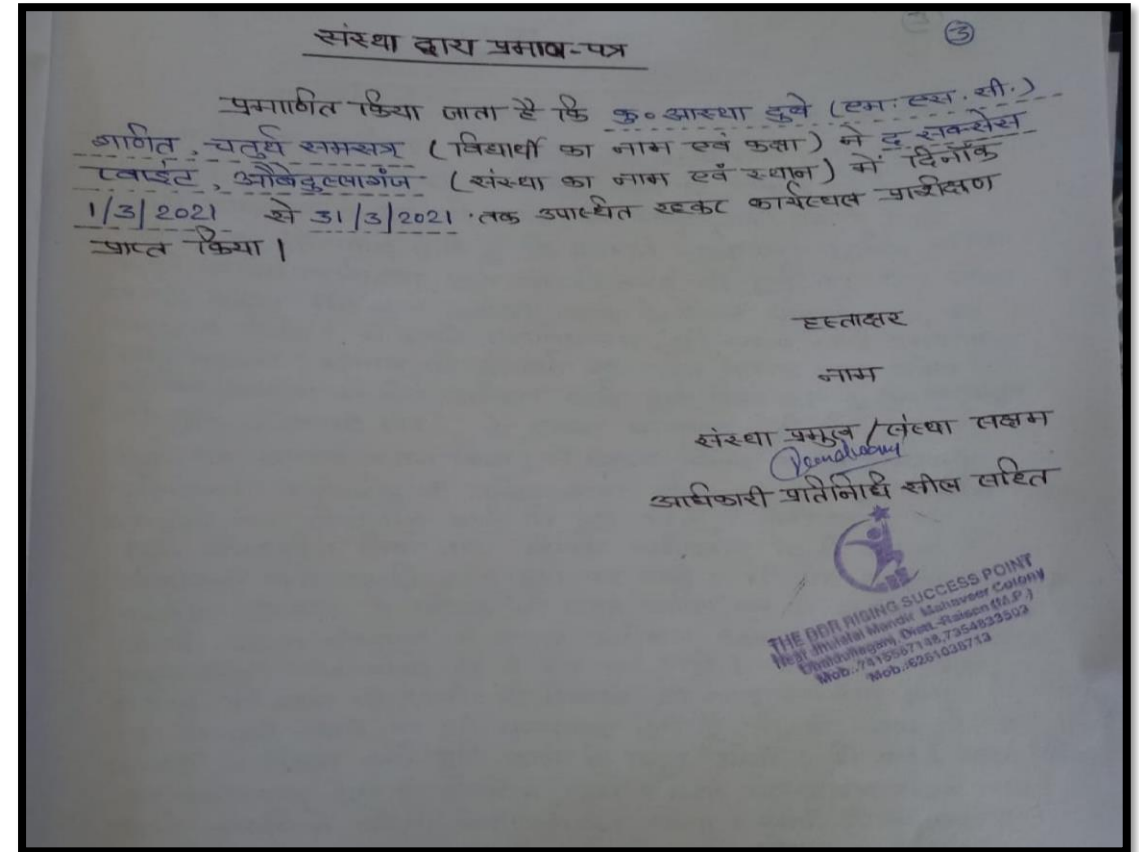 ③
संस्था द्वारा प्रमाण-पत्र
प्रमाणित किया जाता है कि कु॰ आस्था दुबे (एम. एस. सी.)
गणित, चतुर्थ समसत्र (विद्यार्थी का नाम एवं कक्षा) ने द सक्सेस
प्वाईंट, औबेदुल्लागंज (संस्था का नाम एवं स्थान) में दिनाँक
1/3/2021 से 31/3/2021 तक उपस्थित रहकर कार्यस्थल प्रशिक्षण
प्राप्त किया।
हस्ताक्षर
नाम
संस्था प्रमुख / संस्था सक्षम
अधिकारी प्रतिनिधि सील सहित
THE DDR RISING SUCCESS POINT
Near Jhulelal Mandir Mahaveer Colony
Distt.-Raisen (M.P.)
Mob.:7415567148,7354833503
Mob.:6261036713